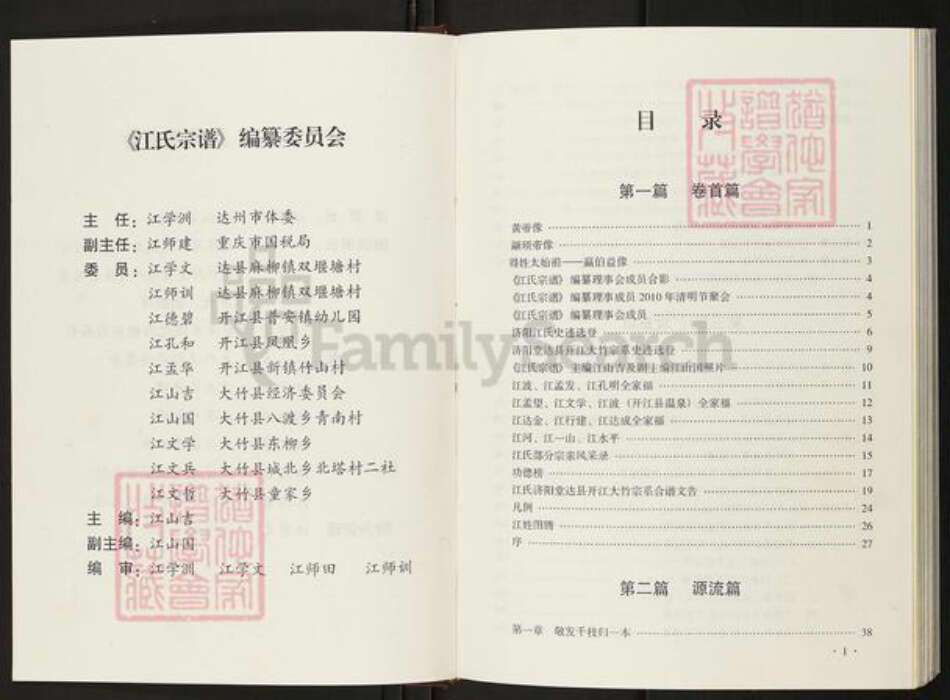 《江氏宗谱》编纂委员会
主 任：江学洲 达州市体委
副主任：江师建 重庆市国税局
委 员：江学文 达县麻柳镇双堰塘村
江师训 达县麻柳镇双堰塘村
江德碧 开江县普安镇幼儿园
江孔和 开江县凤凰乡
江孟华 开江县新镇竹山村
江山吉 大竹县经济委员会
江山国 大竹县八渡乡青南村
江文学 大竹县东柳乡
江文兵 大竹县城北乡北塔村二社
江文哲 大竹县童家乡
主 编：江山吉
副主编：江山国
编 审：江学洲 江学文 江师田 江师训
目 录
第一篇 卷首篇
黄帝像 1
颛顼帝像 2
得姓太始祖——嬴伯益像 3
《江氏宗谱》编纂理事会成员合影 4
《江氏宗谱》编纂理事成员2010年清明节聚会 4
《江氏宗谱》编纂理事会成员 5
济阳江氏史述选登 6
济阳堂达县开江大竹宗系史述选登 9
《江氏宗谱》主编江山吉及副主编江山国照片 10
江波、江孟发、江孔明全家福 11
江孟望、江文学、江波（开江县温泉）全家福 12
江达金、江行建、江达成全家福 13
江河、江一山、江水平 14
江氏部分宗亲风采录 15
功德榜 17
江氏济阳堂达县开江大竹宗系合谱文告 19
凡例 24
江姓图腾 26
序 27
第二篇 源流篇
第一章 敬发千枝归一本 38
· 1 ·
FamilySearch